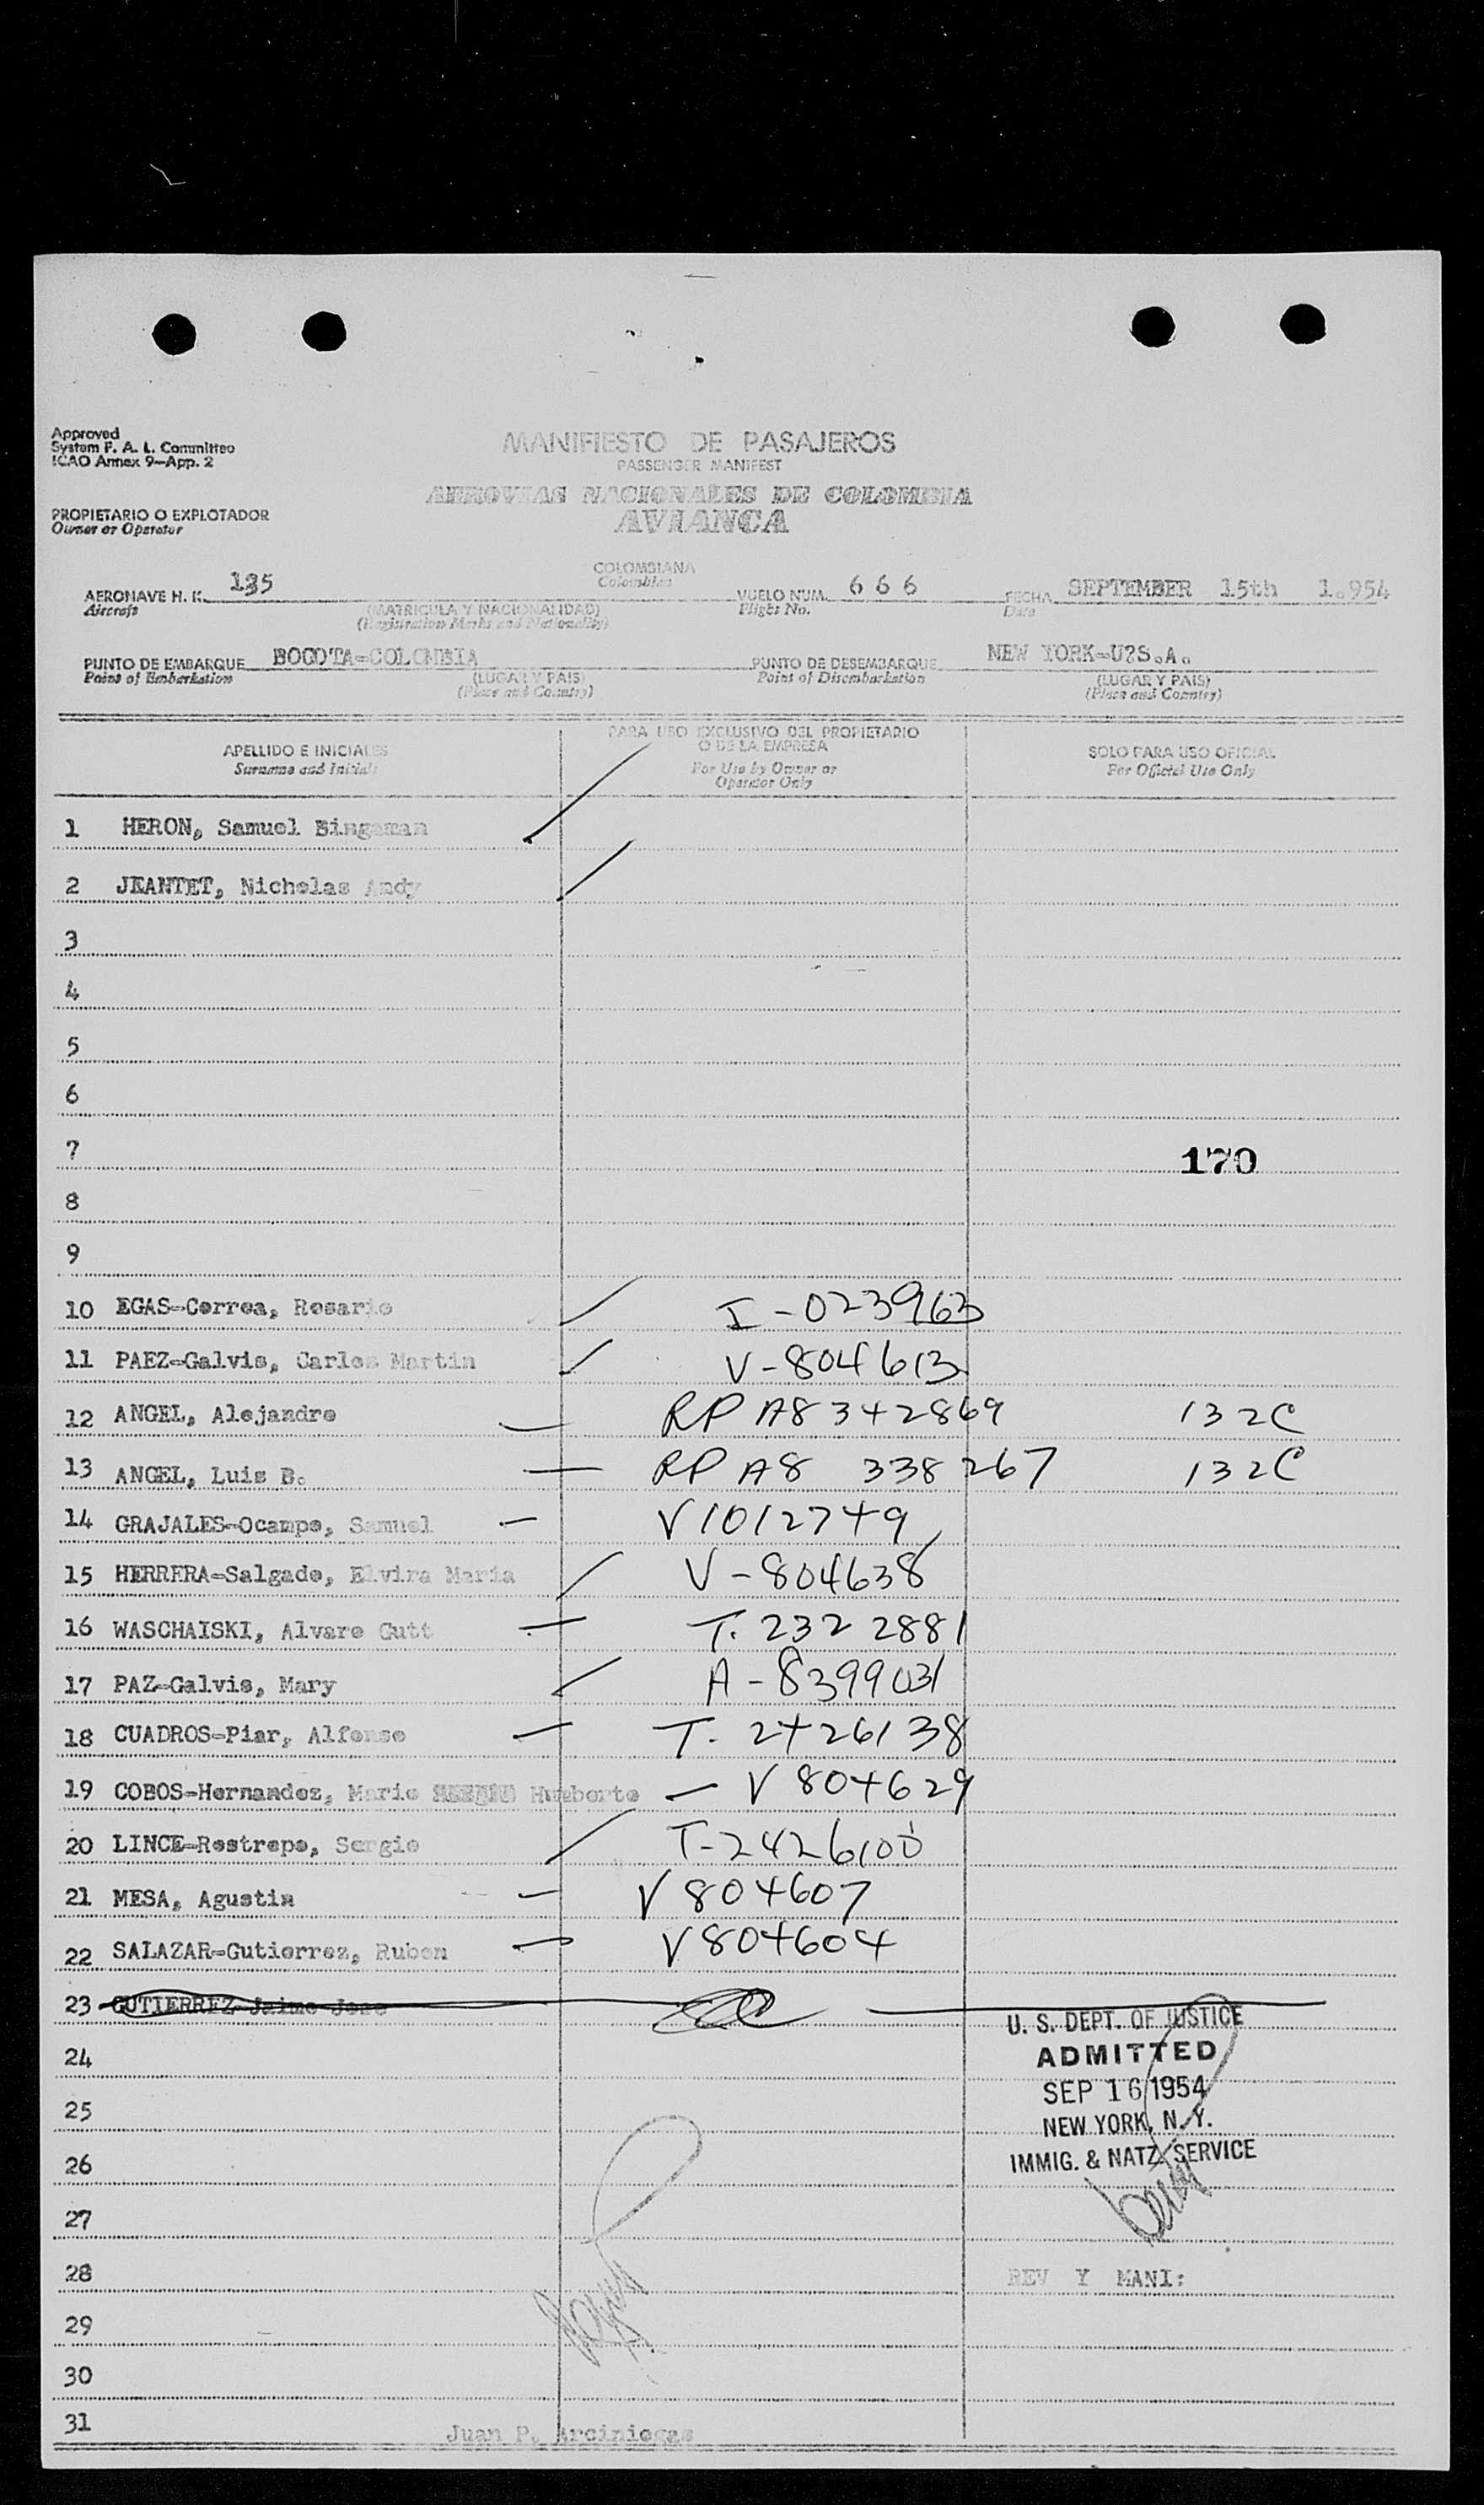 Approved
System F. A. L. Committee
ICAO Annex 9—App. 2
MANIFIESTO DE PASAJEROS
PASSENGER MANIFEST
AEROVIAS NACIONALES DE COLOMBIA
AVIANCA
PROPIETARIO O EXPLOTADOR
Owner or Operator
COLOMBIANA
Colombian
AERONAVE H. K. 135 VUELO NUM. 6 6 6 FECHA SEPTEMBER 15th 1.954
Aircraft (MATRICULA Y NACIONALIDAD) Flight No. Date
(Registration Marks and Nationality)
PUNTO DE EMBARQUE BOGOTA-COLOMBIA PUNTO DE DESEMBARQUE NEW YORK-U?S.A.
Point of Embarkation (LUGAR Y PAIS) Point of Disembarkation (LUGAR Y PAIS)
(Place and Country) (Place and Country)
APELLIDO E INICIALES PARA USO EXCLUSIVO DEL PROPIETARIO O DE LA EMPRESA SOLO PARA USO OFICIAL
Surname and Initials For Use by Owner or Operator Only For Official Use Only
1 HERON, Samuel Bingaman
2 JEANTET, Nicholas Andy
3
4
5
6
7 170
8
9
10 EGAS-Correa, Rosario I-023963
11 PAEZ-Galvis, Carlos Martin V-804613
12 ANGEL, Alejandro RP A8342869 132C
13 ANGEL, Luis B. RP A8 338267 132C
14 GRAJALES-Ocampo, Samuel V1012749
15 HERRERA-Salgado, Elvira Maria V-804638
16 WASCHAISKI, Alvaro Gutt T. 232 2881
17 PAZ-Galvis, Mary A-8399031
18 CUADROS-Piar, Alfonso T. 2426138
19 COBOS-Hernandez, Mario Humberto V 804629
20 LINCE-Restrepo, Sergio T-2426100
21 MESA, Agustin V 804607
22 SALAZAR-Gutierrez, Ruben V804604
23 GUTIERREZ Jaime Jose
24
25
26
27
28
29
30
31
U. S. DEPT. OF JUSTICE
ADMITTED
SEP 16 1954
NEW YORK, N. Y.
IMMIG. & NATZ. SERVICE
REV Y MANI:
Juan P. Arciniegas